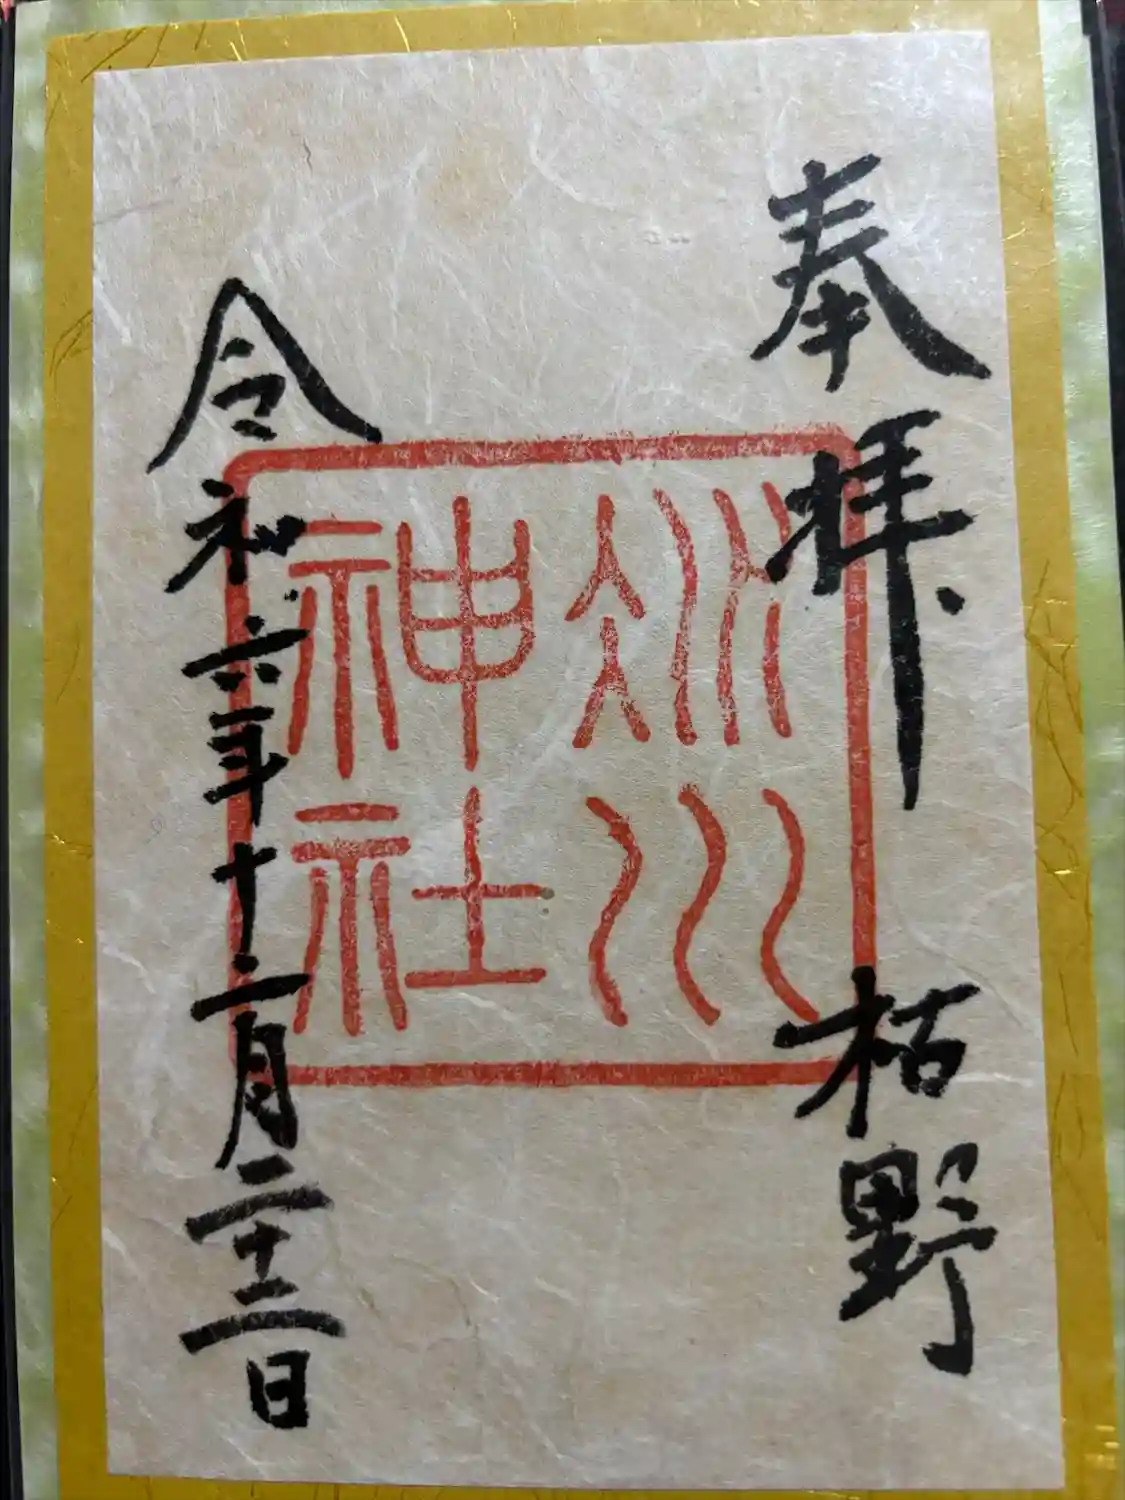 奉拝 枯野
川
神社
令和六年十二月二十三日